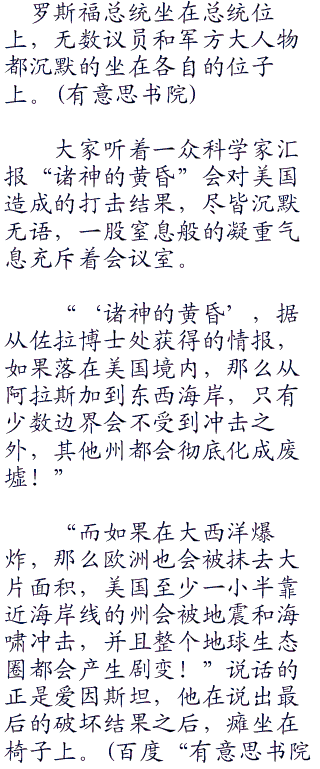 罗斯福总统坐在总统位
上，无数议员和军方大人物
都沉默的坐在各自的位子
上。(有意思书院)
大家听着一众科学家汇
报“诸神的黄昏”会对美国
造成的打击结果，尽皆沉默
无语，一股窒息般的凝重气
息充斥着会议室。
“‘诸神的黄昏’，据
从佐拉博士处获得的情报，
如果落在美国境内，那么从
阿拉斯加到东西海岸，只有
少数边界会不受到冲击之
外，其他州都会彻底化成废
墟！”
“而如果在大西洋爆
炸，那么欧洲也会被抹去大
片面积，美国至少一小半靠
近海岸线的州会被地震和海
啸冲击，并且整个地球生态
圈都会产生剧变！”说话的
正是爱因斯坦，他在说出最
后的破坏结果之后，瘫坐在
椅子上。(百度“有意思书院